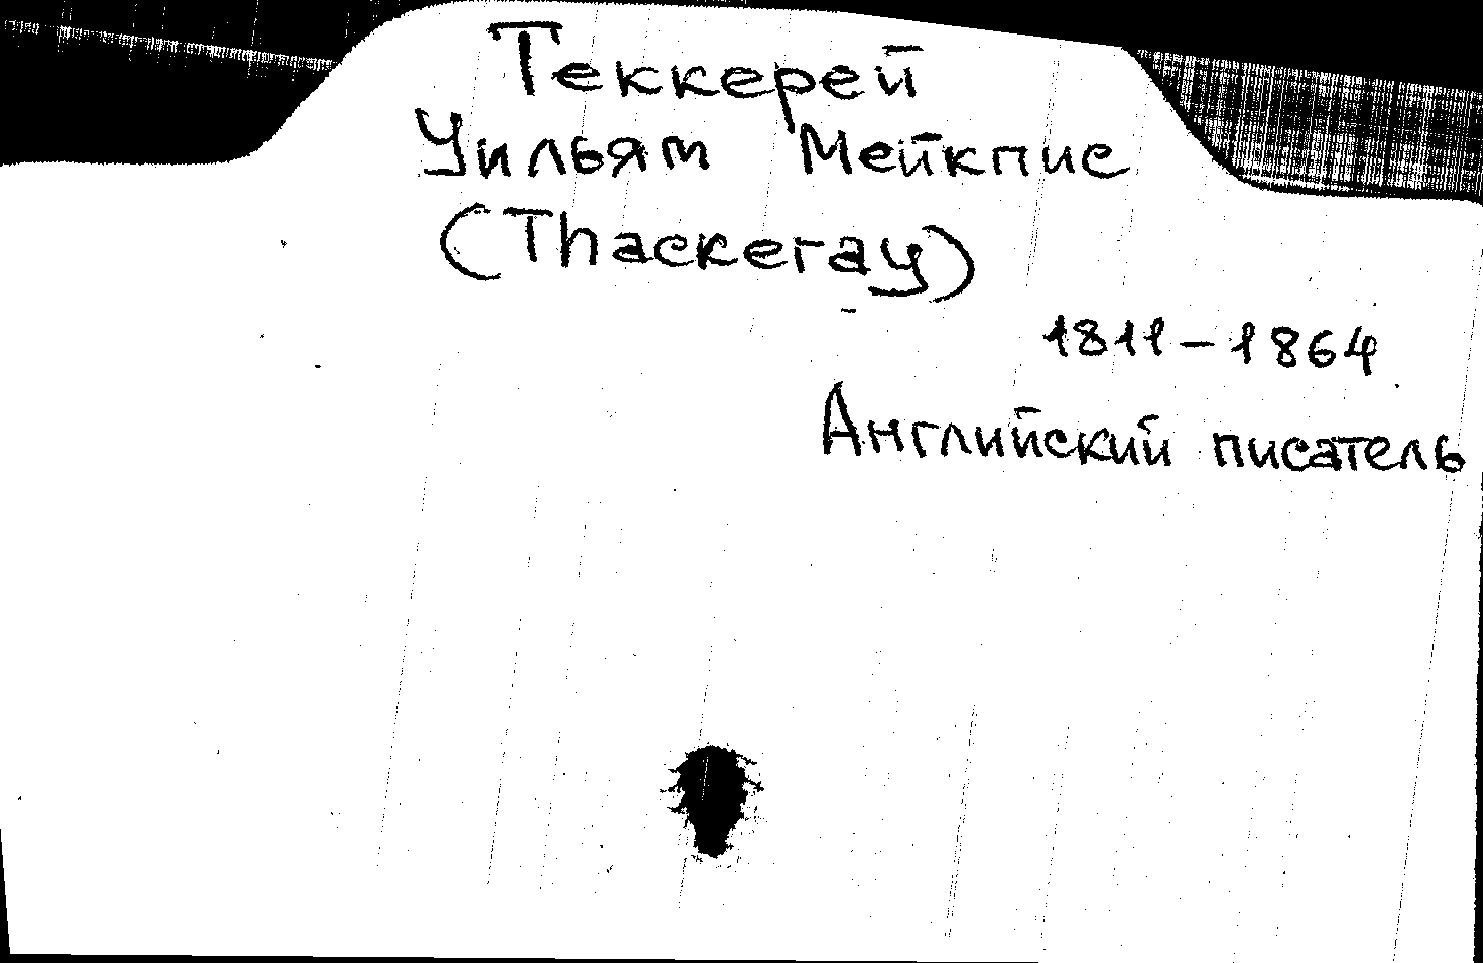 Теккерей
Уильям Мейкпис
(Thackeray)
1811-1864
Английский писатель